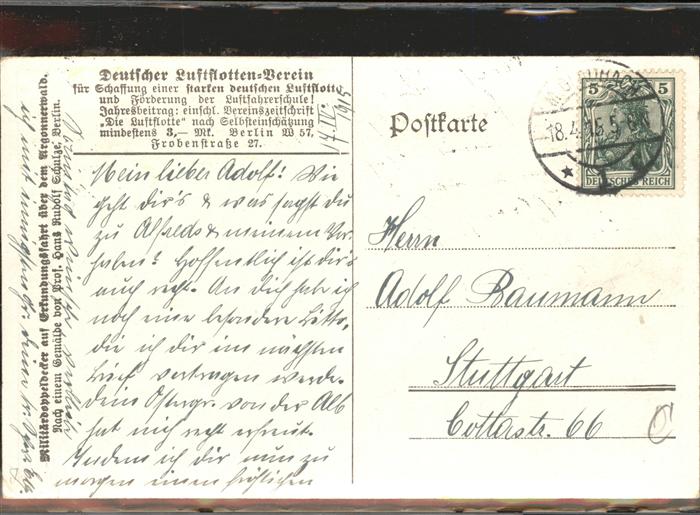 Deutscher Luftflotten-Verein
für Schaffung einer starken deutschen Luftflotte
und Förderung der Luftfahrerschule!
Jahresbeitrag: einschl. Vereinszeitschrift
"Die Luftflotte" nach Selbsteinschätzung
mindestens 3,— Mk. Berlin W 57,
Frobenstraße 27.
17. IV.
1915
Mein lieber Adolf! Wie
geht dir's & was sagst du
zu Alfreds & meinem Vor-
haben? Hoffentlich ist dir's
auch recht. An dich habe ich
noch eine besondere Bitte,
die ich dir im nächsten
Brief vortragen werde.
Dein Ostergr. von der Alb
hat mich recht erfreut.
Indem ich dir nun zu
morgen einen fröhlichen
Militärdoppeldecker auf Erkundungsfahrt über dem Argonnerwald.
Nach einem Gemälde von Prof. Hans Rudolf Schulze, Berlin.
Postkarte
18.4.15.5
5 5
DEUTSCHES REICH
Herrn
Adolf Baumann
Stuttgart
Cottastr. 66